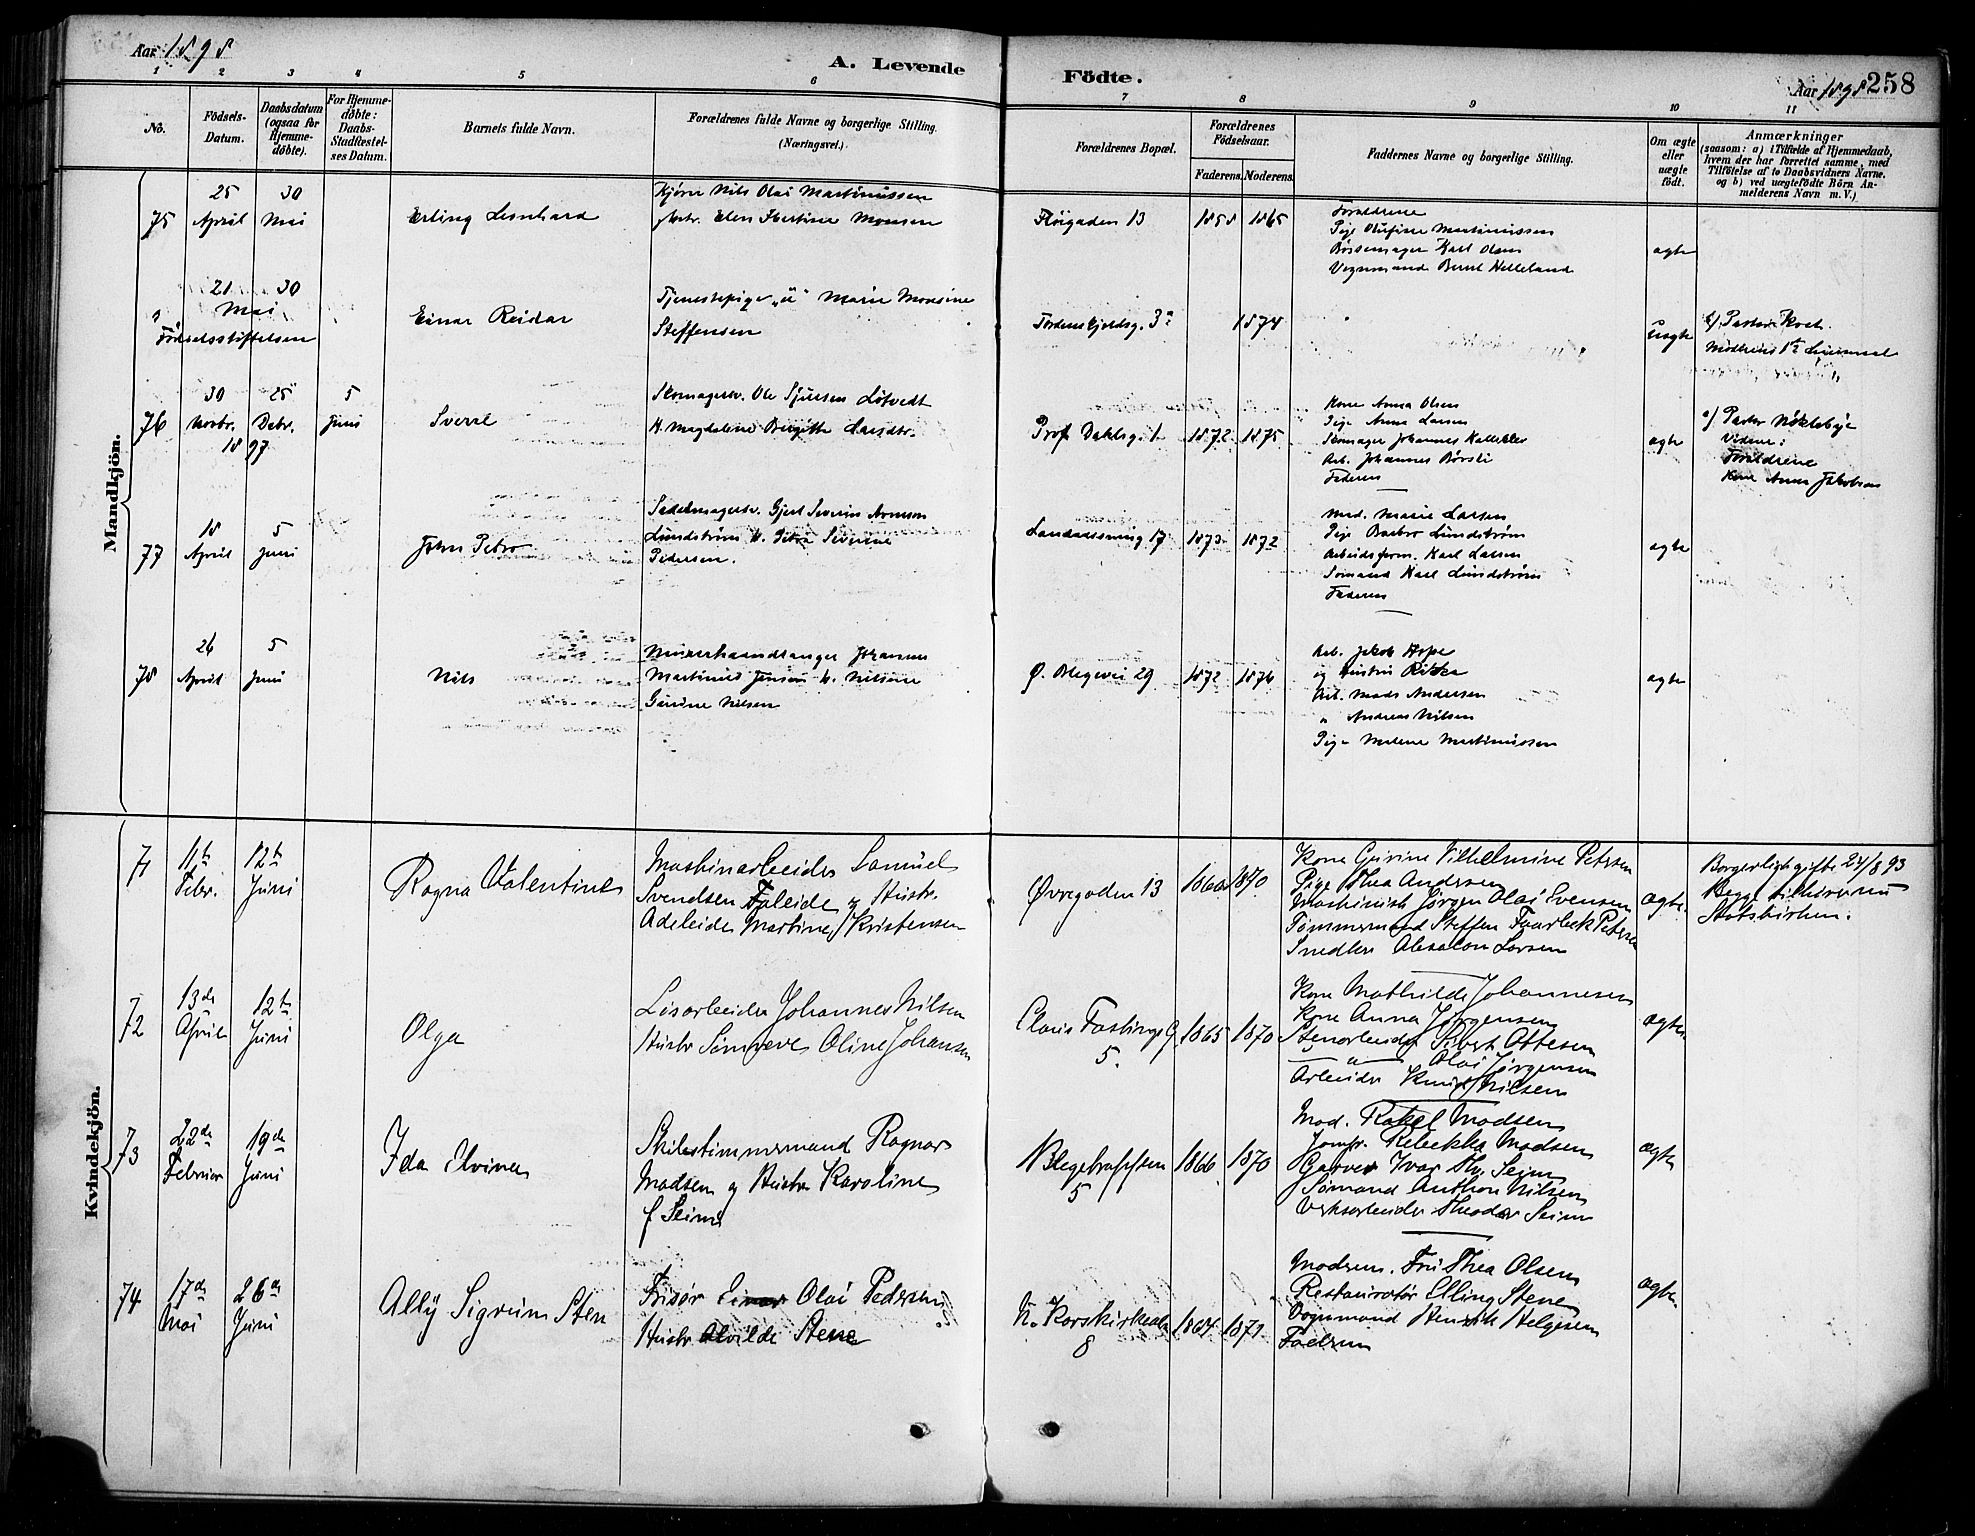 Aar 1898
A. Levende
Födte.
Aar 1898 258
1 2 3 4 5 6 7 8 9 10 11
No.
Födsels-
Datum.
Daabsdatum
(ogsaa for
Hjemme-
døbte).
For Hjemme-
døbte:
Daabs-
Stadfæstel-
ses Datum.
Barnets fulde Navn.
Forældrenes fulde Navne og borgerlige Stilling.
(Næringsvei.)
Forældrenes Bopæl.
Forældrenes
Födselsaar.
Faderens. Moderens.
Faddernes Navne og borgerlige Stilling.
Om ægte
eller
uægte
født.
Anmærkninger
(saasom: a) i Tilfælde af Hjemmedaab,
hvem der har forrettet samme, med
Tilföielse af to Daabsvidners Navne.
og b) ved uægtefödte Börn An-
melderens Navn m. V.)
Mandkjön.
75
25
April
30
Mai
Erling Leonhard
Nils Olai Martinussen
Elen Monsen
Fløigaden 13
1858 1865
Forældrene
Pige Olufine Martinussen
Karl Olsen
Vognmand Bernt Helleland
ægte
"
21 30
Mai
Fødselsstiftelsen
Einar Reidar
Tjenestepige "u" Marie Monsine
Steffensen
Tordenskjoldsg. 3
1874
uægte
b/ Pastor Koch.
Moderens
76
30 25 5
Novbr. Debr. Juni
1897
Sverre
Skomagersv. Ole Sjursen Løtvedt
H. Magdalene Birgitte Larsdtr.
Prof. Dahlsg. 1
1872 1875
Kone Anna Olsen
Pige Anna Larsen
Skomager Johannes
Arb. Johannes Børsli
Faderen
ægte
a/ Pastor Nøklebye
Vidner:
Forældrene
Kone Anna Jakobsen
77
18 5
April Juni
John Petro
Sadelmagersv. Gjert Severin
Lundstrøm H. Petra Severine
Pedersen.
17
1873 1872
Mad. Marie Larsen
Pige Barbro Lundstrøm
Arbeidsform. Karl Larsen
Sømand Karl Lundstrøm
Faderen
ægte
78
26 5
April Juni
Nils
Murerhaandlanger Johannes
Martinus Jensen H. Nilsine
Gurine Nilsen
Ø. Blegevei 29
1872 1876
Arb. Jakob Hope
og Hustru
Arb. Mads Andersen
" Andreas Nilsen
Pige Malene Martinussen
ægte
Kvindekjön.
71
11te 12te
Febr. Juni
Ragna Valentine
Maskinarbeider Samuel
Svendsen Faleide og Hustr.
Adeleide Martine Kristensen
Øvregaden 13
1860 1870
Kone Gurine Vilhelmine Petersen
Pige Thea Andersen
Maskinist Jørgen Olai Svensen
Tømmermand Steffen Petersen
Snedker Absalon Larsen
ægte.
Borgerligt gifte 24/8 93
Begge tilhører nu
Statskirken.
72
13de 12te
April Juni
Olga
Johannes Nilsen
Hustr Synneve Oline Johansen
Claus Fastings G
5.
1865 1870
Kone Mathilde Johannesen
Kone Anna Jørgensen
Stenarbeider Sivert Ottesen
" Olai Jørgensen
Arbeider Knut Nilsen
ægte.
73
22de 19de
Februar Juni
Ida Elvine
Skibstømmermand Ragnar
Madsen og Hustr Karoline
f Seim
5
1866 1870
Mad. Rakel Madsen
Jomfr. Rebekka Madsen
Garver Ivar Seim
Sømand Anthon Nilsen
Verksarbeider Theodor Seim
ægte
74
17de 26de
Mai Juni
Ally Sigrun Sten
Frisør Olai Pedersen
Hustr Alvilde Stene
N. Korskirkealm
8
1864 1871
Moderen. Fru Thea Olsen
Restauratør Elling Stene
Vognmand Henrik Helgesen
Faderen
ægte.